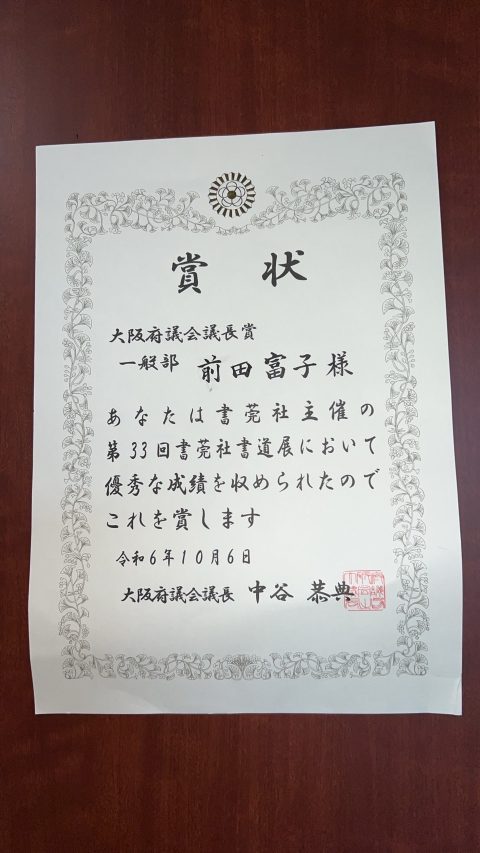 賞状
大阪府議会議長賞
一般部 前田富子様
あなたは書莞社主催の
第33回書莞社書道展において
優秀な成績を収められたので
これを賞します
令和6年10月6日
大阪府議会議長 中谷恭典